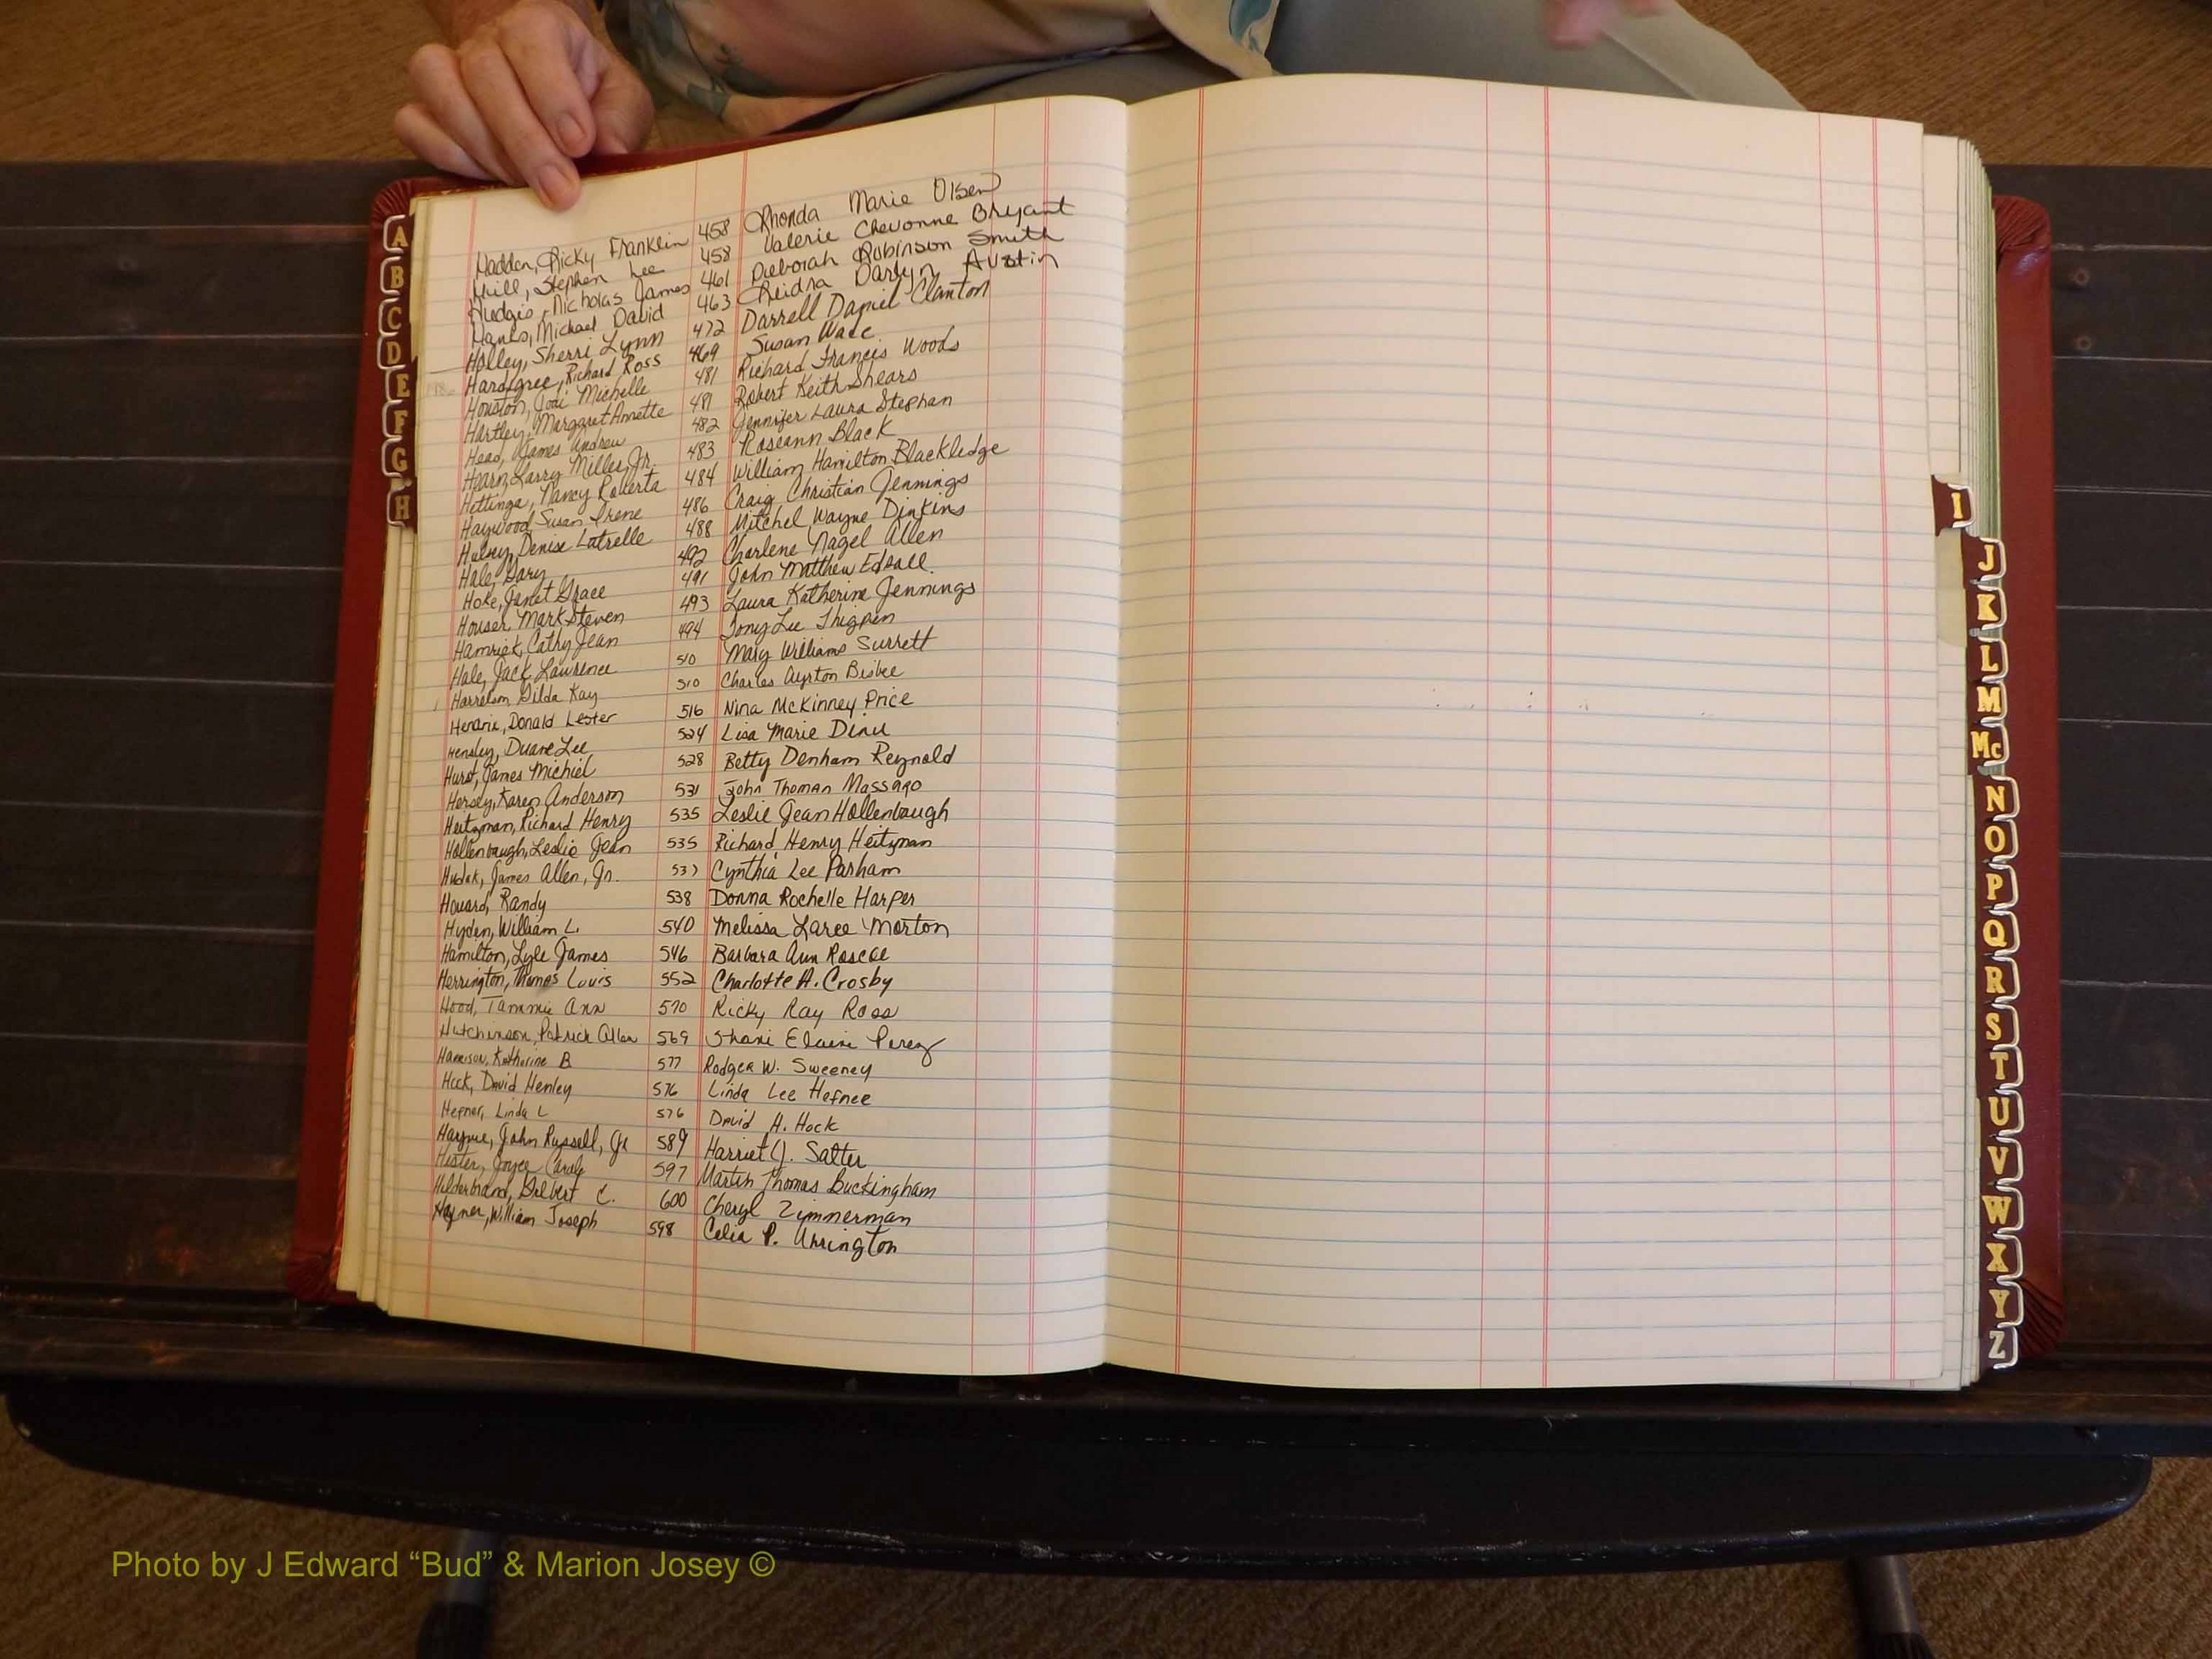 Madden, Ricky Franklin 458 Rhonda Marie Olsen
Hill, Stephen Lee 458 Valerie Chevonne Bryant
Hudgis, Nicholas James 461 Deborah Robinson Smith
Hanks, Michael David 463 Reidra Darlyn Austin
Holley, Sherri Lynn 472 Darrell Daniel Clanton
Hardigree, Richard Ross 469 Susan Wade
Houston, Jodi Michelle 481 Richard Francis Woods
Hartley, Margaret Annette 481 Robert Keith Shears
Head, James Andrew 482 Jennifer Laura Stephan
Hearn, Larry Miller, Jr. 483 Roseann Black
Hettinga, Nancy Roberta 484 William Hamilton Blackledge
Haywood, Susan Irene 486 Craig Christian Jennings
Hulsey, Denise Latrelle 488 Mitchel Wayne Dinkins
Hale, Gary 492 Charlene Nagel Allen
Hoke, Janet Grace 491 John Matthew Edsall
Houser, Mark Steven 493 Laura Katherine Jennings
Hamrick, Cathy Jean 494 Tony Lee Thigpen
Hale, Jack Lawrence 510 Mary Williams Surrett
Harrelson, Gilda Kay 510 Charles Ayrton Bisbee
Hendrix, Donald Lester 516 Nina McKinney Price
Hensley, Duane Lee 524 Lisa Marie Dinu
Hurst, James Michiel 528 Betty Denham Reynold
Hersey, Karen Anderson 531 John Thoman Massaro
Heitzman, Richard Henry 535 Leslie Jean Hollenbaugh
Hollenbaugh, Leslie Jean 535 Richard Henry Heitzman
Hudak, James Allen, Jr. 537 Cynthia Lee Parham
Howard, Randy 538 Donna Rochelle Harper
Hyden, William L. 540 Melissa Laree Morton
Hamilton, Lyle James 546 Barbara Ann Roscoe
Herrington, Thomas Louis 552 Charlotte A. Crosby
Hood, Tammie Ann 570 Ricky Ray Ross
Hutchinson, Patrick Allen 569 Shani Elaine Perez
Harrison, Katherine B 577 Rodger W. Sweeney
Hock, David Henley 576 Linda Lee Hefner
Hefner, Linda L 576 David H. Hock
Haynie, John Russell, Jr 589 Harriet J. Salter
Hester, Joyce Carole 597 Martin Thomas Buckingham
Hilderbrand, Gilbert C. 600 Cheryl Zimmerman
Hayner, William Joseph 598 Celia P. Urrington
A
B
C
D
E
F
G
H
I
J
K
L
M
Mc
N
O
P
Q
R
S
T
U
V
W
X
Y
Z
Photo by J Edward “Bud” & Marion Josey ©